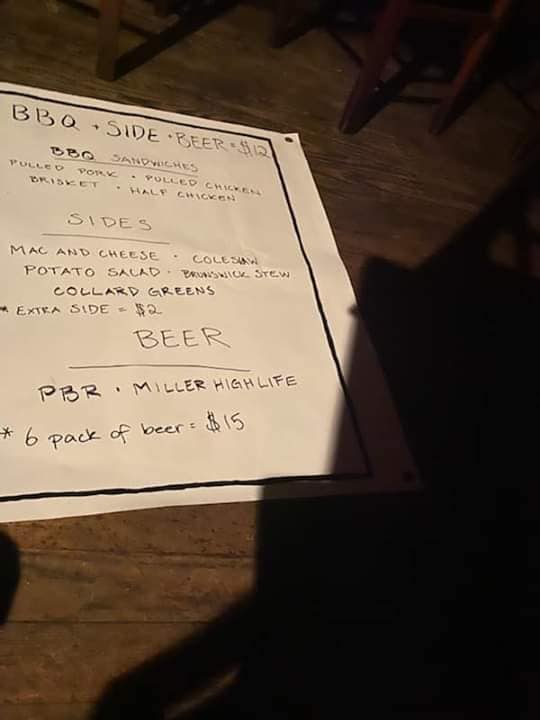 BBQ • SIDE • BEER = $12
BBQ SANDWICHES
PULLED PORK • PULLED CHICKEN
BRISKET • HALF CHICKEN
SIDES
MAC AND CHEESE • COLESLAW
POTATO SALAD • BRUNSWICK STEW
COLLARD GREENS
* EXTRA SIDE = $2
BEER
PBR • MILLER HIGH LIFE
* 6 pack of beer = $15